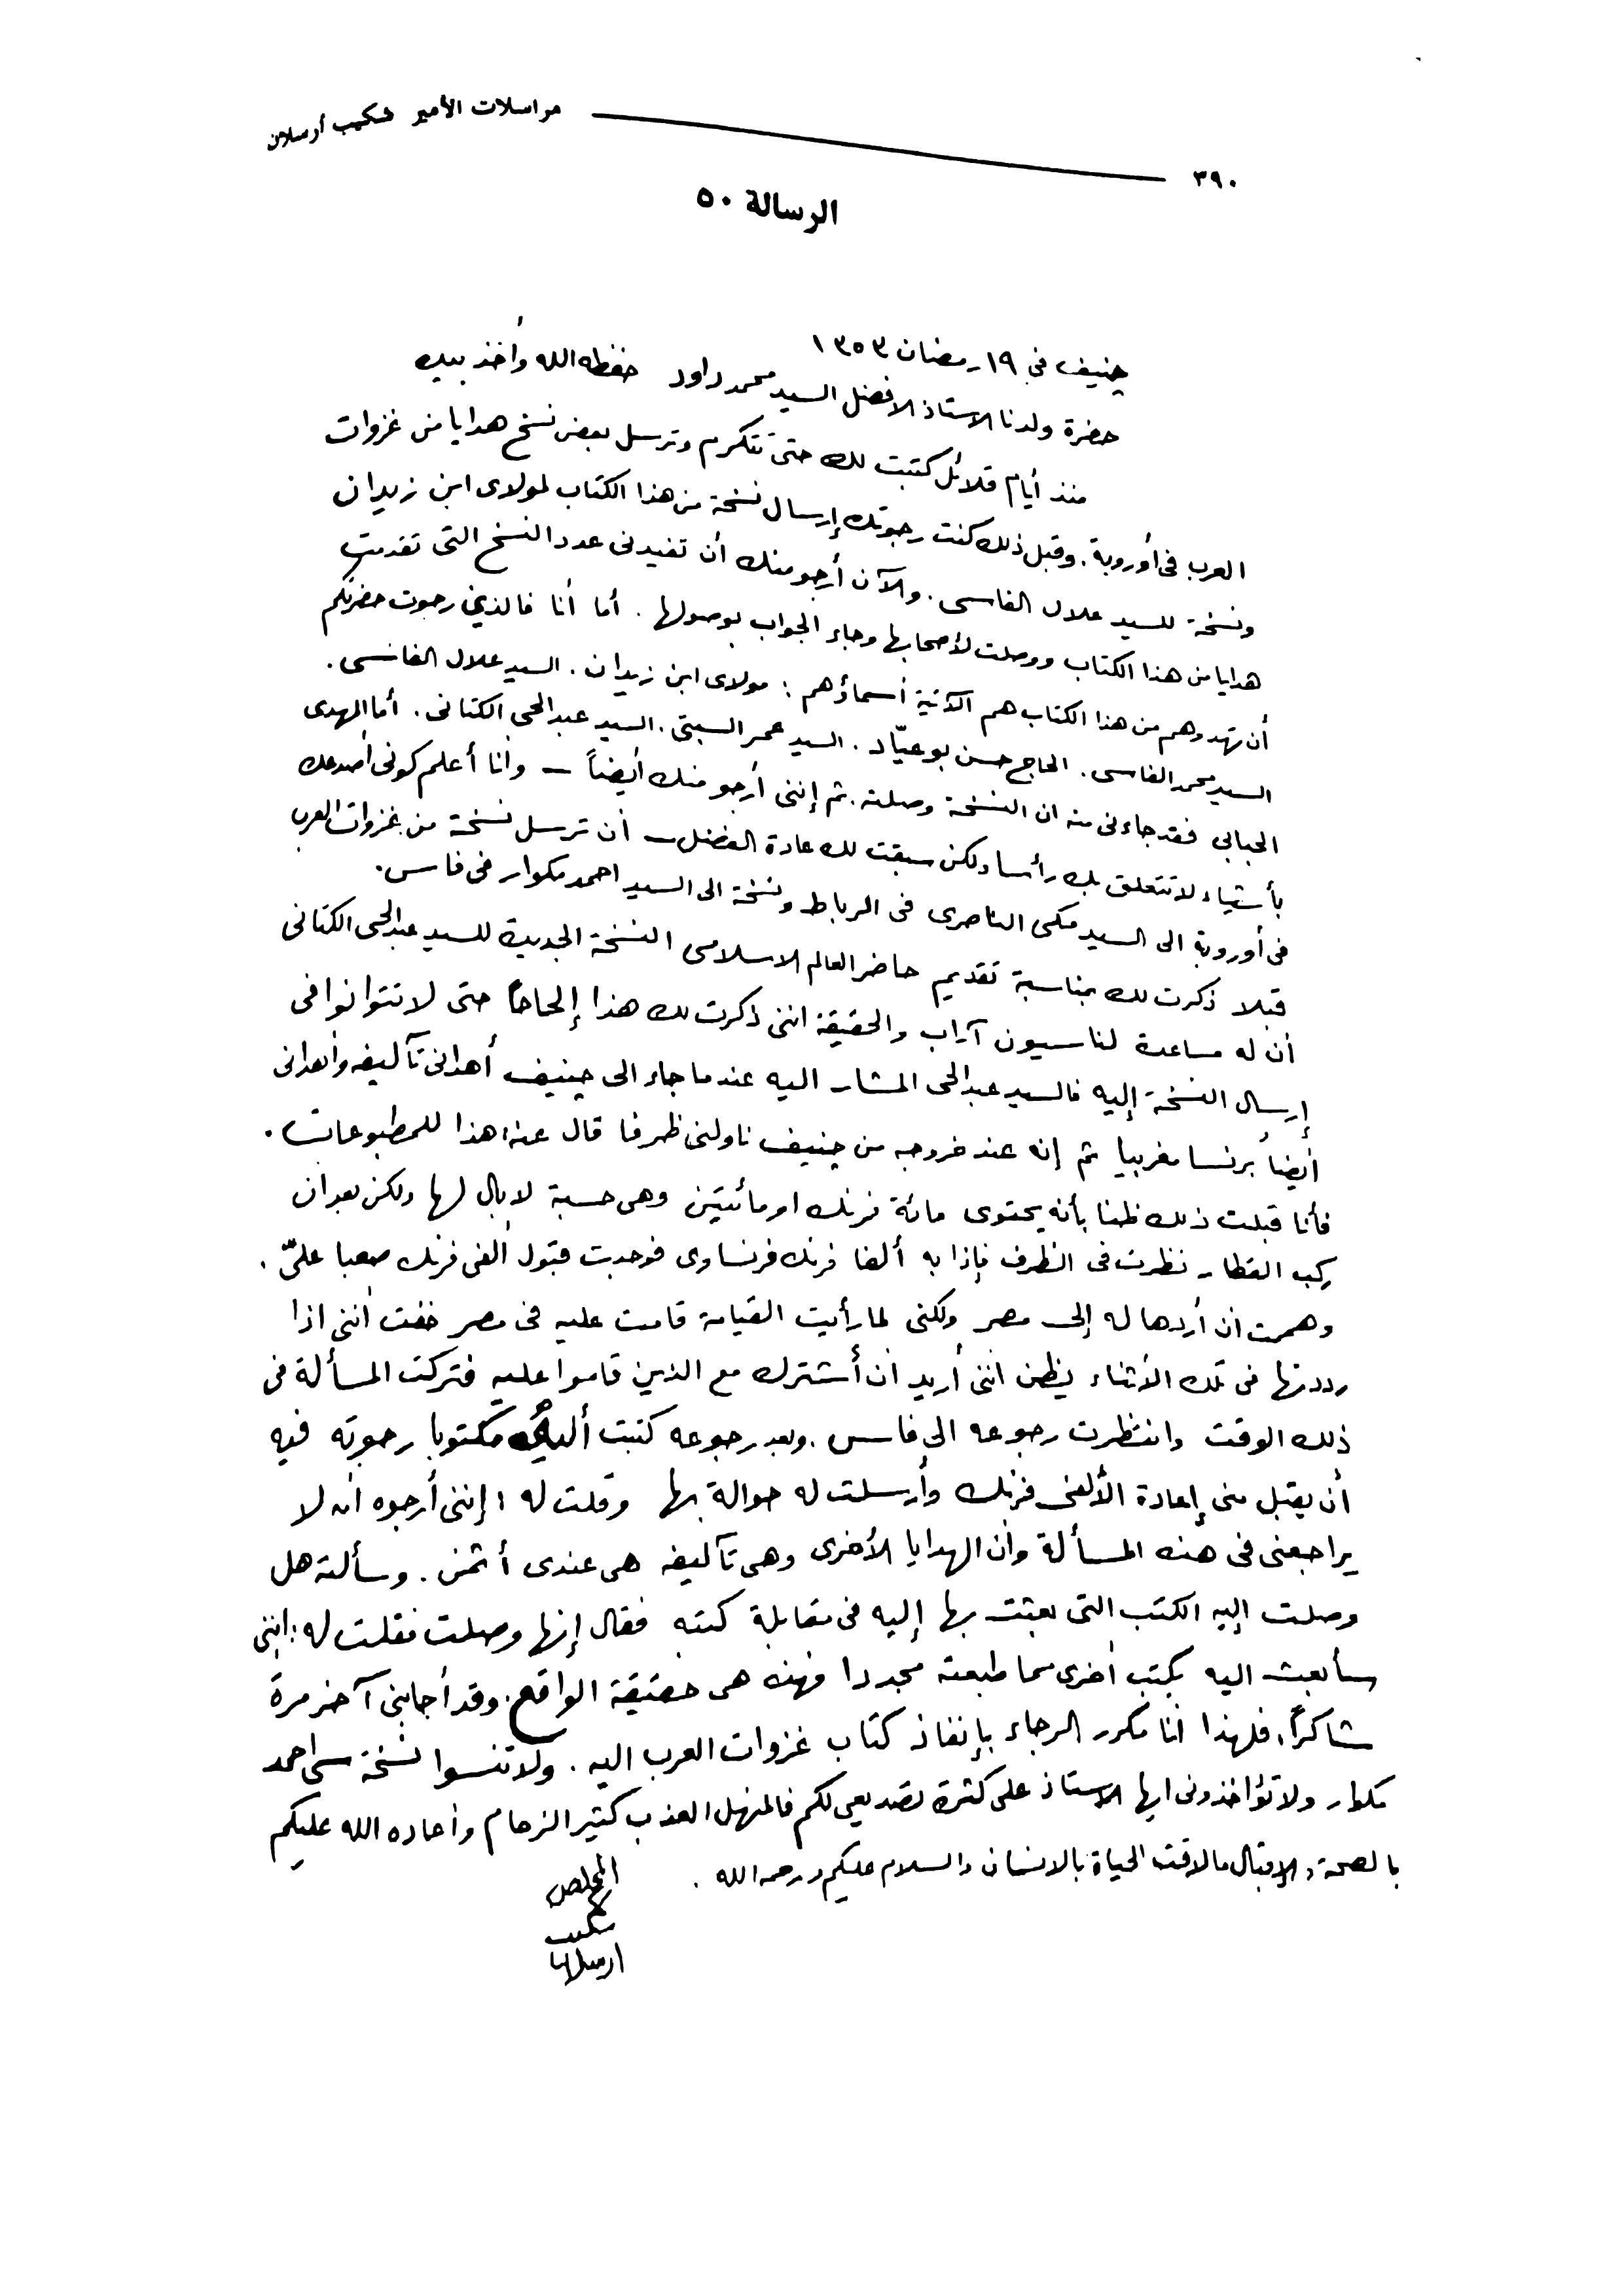 مراسلات الأمير شكيب أرسلان
٣٩٠
الرسالة ٥٠
جنيف في ١٩ رمضان ١٣٥٣
حضرة ولدنا الاستاذ الافضل السيد محمد داود حفظه الله وأخذ بيده
منذ أيام قلائل كتبت لك حتى تتكرم وترسل بعض نسخ هدايا من غزوات
العرب في أوروبة . وقبل ذلك كنت رجوتك إرسال نسخة من هذا الكتاب لمولاي ابن زيدان
ونسخة للسيد علال الفاسي . والآن أرجو منك أن تفيدني عدد النسخ التي تقدمت
هدايا من هذا الكتاب ووصلت لأصحابها وجاء الجواب بوصولها . أما أنا فالذين رجوت حضرتكم
أن تهدوهم من هذا الكتاب هم الآتية أسماؤهم : مولاي ابن زيدان . السيد علال الفاسي .
السيد محمد الفاسي . الحاج حسن بوعيّاد . السيد عمر السبتي . السيد عبد الحي الكتاني . أما المهدي
الحبابي فقد جاءني منه ان النسخة وصلته . ثم إنني أرجو منك أيضاً — وانا أعلم كوني أصدعك
بأشياء لا تتعلق بك رأسا ولكن سبقت لك عادة الفضل — أن ترسل نسخة من غزوات العرب
في أوروبة الى السيد مكي الناصري في الرباط ونسخة الى السيد احمد مكوار في فاس .
قبلا ذكرت لك بمناسبة تقديم حاضر العالم الاسلامي النسخة الجديدة للسيد عبد الحي الكتاني
أن له مساعدة لناسيون آراب والحقيقة انني ذكرت لك هذا إلحاحاً حتى لا تتوانوا في
إرسال النسخة إليه فالسيد عبد الحي المشار اليه عندما جاء الى جنيف أهداني تآليفه وأهداني
أيضاً برنسا مغربيا ثم إنه عند خروجه من جنيف ناولني ظرفا قال عنه : هذا للمطبوعات .
فأنا قبلت ذلك ظنا بأنه يحتوي مائة فرنك او مائتين وهي حسبة لا بال لها ولكن بعد ان
ركب القطار نظرت في الظرف فإذا به ألفا فرنك فرنساوي فوجدت قبول الفي فرنك صعبا عليّ .
وهممت ان أردها له إلى مصر ولكني لما رأيت القيامة قامت عليه في مصر خفت انني اذا
رددتها في تلك الأثناء يظن انني أريد أن أشترك مع الذين قاموا عليه فتركت المسألة في
ذلك الوقت وانتظرت رجوعه الى فاس . وبعد رجوعه كتبت مكتوبا رجوته فيه
أن يقبل مني إعادة الألفي فرنك وأرسلت له حوالة بها وقلت له : إنني أرجوه انه لا
يراجعني في هذه المسألة وان الهدايا الأخرى وهي تآليفه هي عندي أثمن . وسألته هل
وصلت إليه الكتب التي بعثت بها إليه في مقابلة كتبه فقال إنها وصلت فقلت له : إنني
سأبعث اليه بكتب أخرى مما طبعته مجددا فهذه هي حقيقة الواقع . وقد أجابني آخر مرة
شاكراً . فلهذا انا مكرر الرجاء بإنفاذ كتاب غزوات العرب اليه . ولا تنسوا نسخة سي احمد
مكوار ولا تؤاخذوني ايها الاستاذ على كثرة تصديعي لكم فالمنهل العذب كثير الزحام وأعاده الله عليكم
بالصحة والإقبال ما لاقت الحياة بالانسان والسلام عليكم ورحمة الله .
المخلص
شكيب
ارسلان